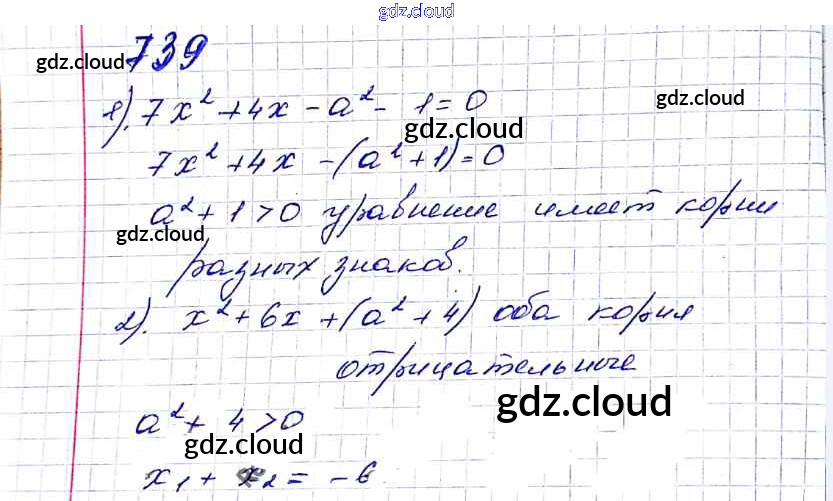 gdz.cloud
gdz.cloud 739
1). 7x² + 4x - a² - 1 = 0 gdz.cloud
gdz.cloud
7x² + 4x - (a² + 1) = 0
a² + 1 > 0 уравнение имеет корни
gdz.cloud
разных знаков.
2). x² + 6x + (a² + 4) оба корня
отрицательные
gdz.cloud
a² + 4 > 0
gdz.cloud
x₁ + x₂ = -6